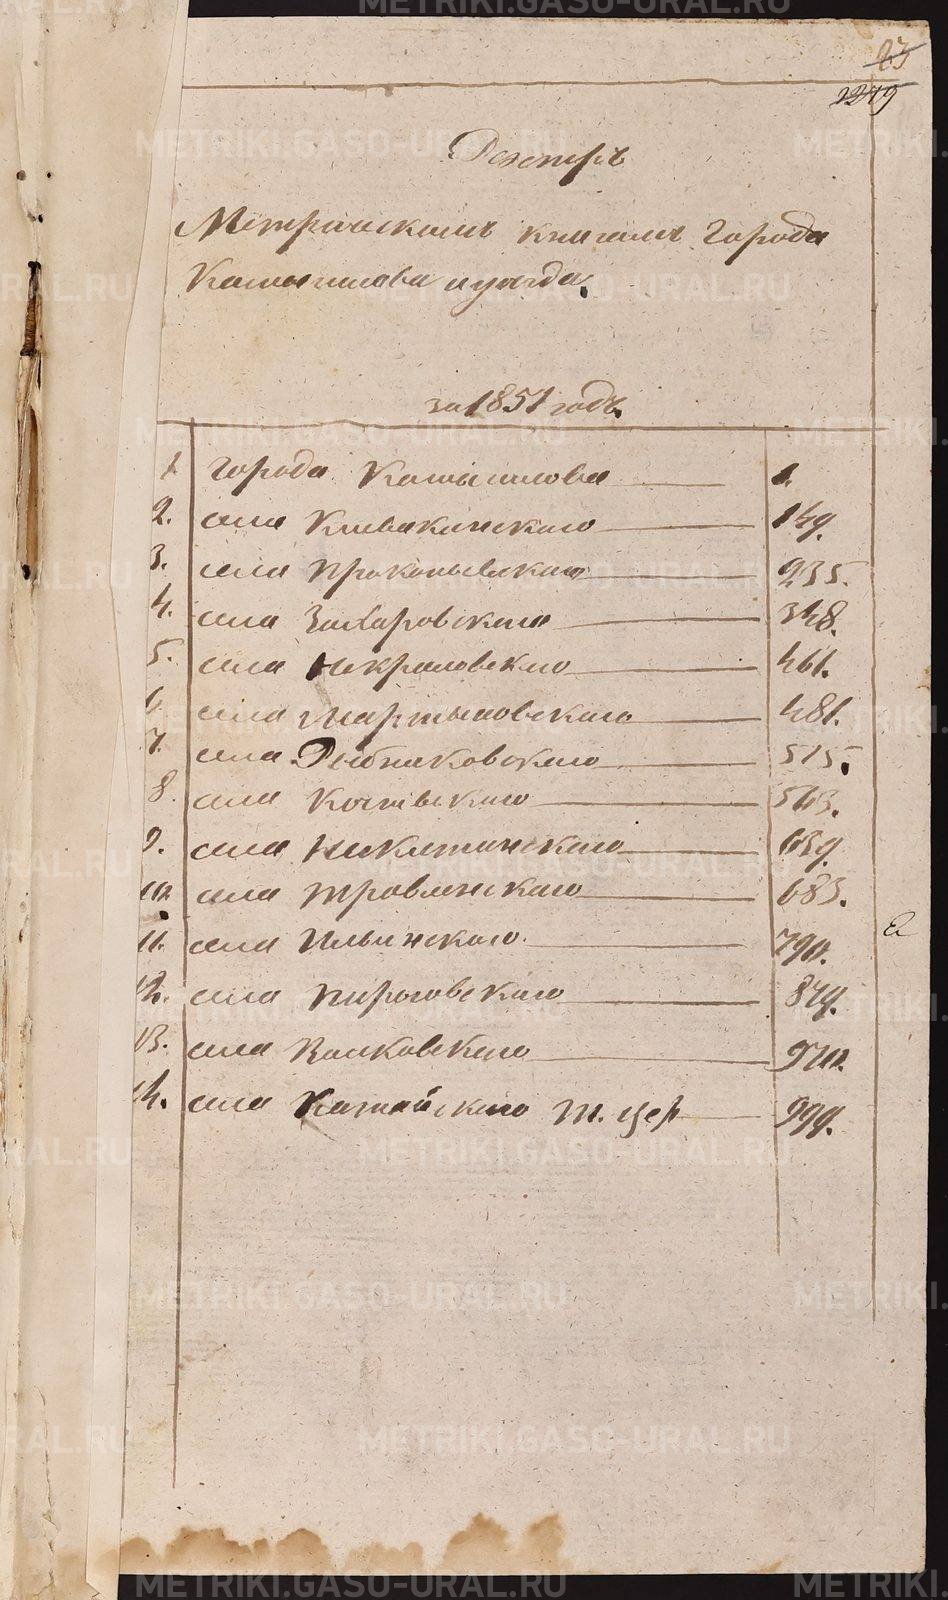 23
Реестръ
Метрическимъ книгамъ города
Камышлова и уезда.
за 1851 годъ.
1. города Камышлова 1.
2. села Клевакинскаго 149.
3. села Прокопьевскаго 235.
4. села Захаровскаго 348.
5. села Некрасовскаго 461.
6. села Мартыновскаго 481.
7. села Рыбниковскаго 515.
8. села 543.
9. села Никитинскаго 639.
10. села Травянскаго 683.
11. села Ильинскаго 790.
12. села Пироговскаго 879.
13. села Волковскаго 970.
14. села Катайскаго т. цер 999.